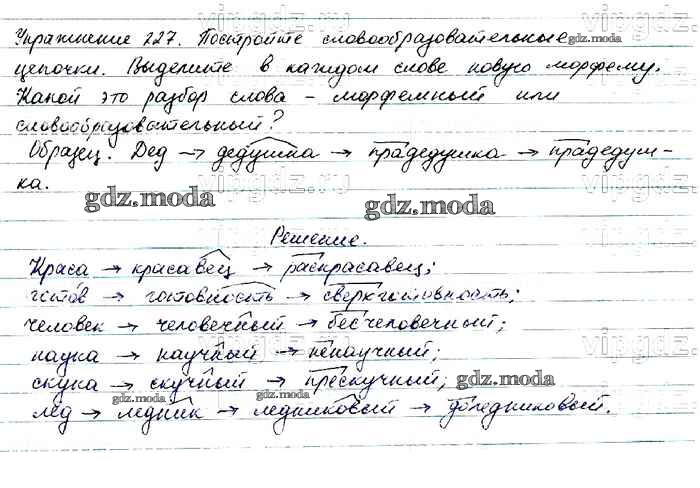 Упражнение 227. Постройте словообразовательные
цепочки. Выделите в каждом слове новую морфему.
Какой это разбор слова – морфемный или
словообразовательный?
Образец. Дед → дедушка → прадедушка → прадедуш-
ка.
Решение.
Краса → красавец → раскрасавец;
готов → готовность → сверхготовность;
человек → человечный → бесчеловечный;
наука → научный → ненаучный;
скука → скучный → прескучный;
лёд → ледник → ледниковый → доледниковый.
gdz.moda
gdz.moda
gdz.moda
gdz.moda
gdz.moda
gdz.moda
vipgdz.ru
vipgdz.ru
vipgdz.ru
vipgdz.ru